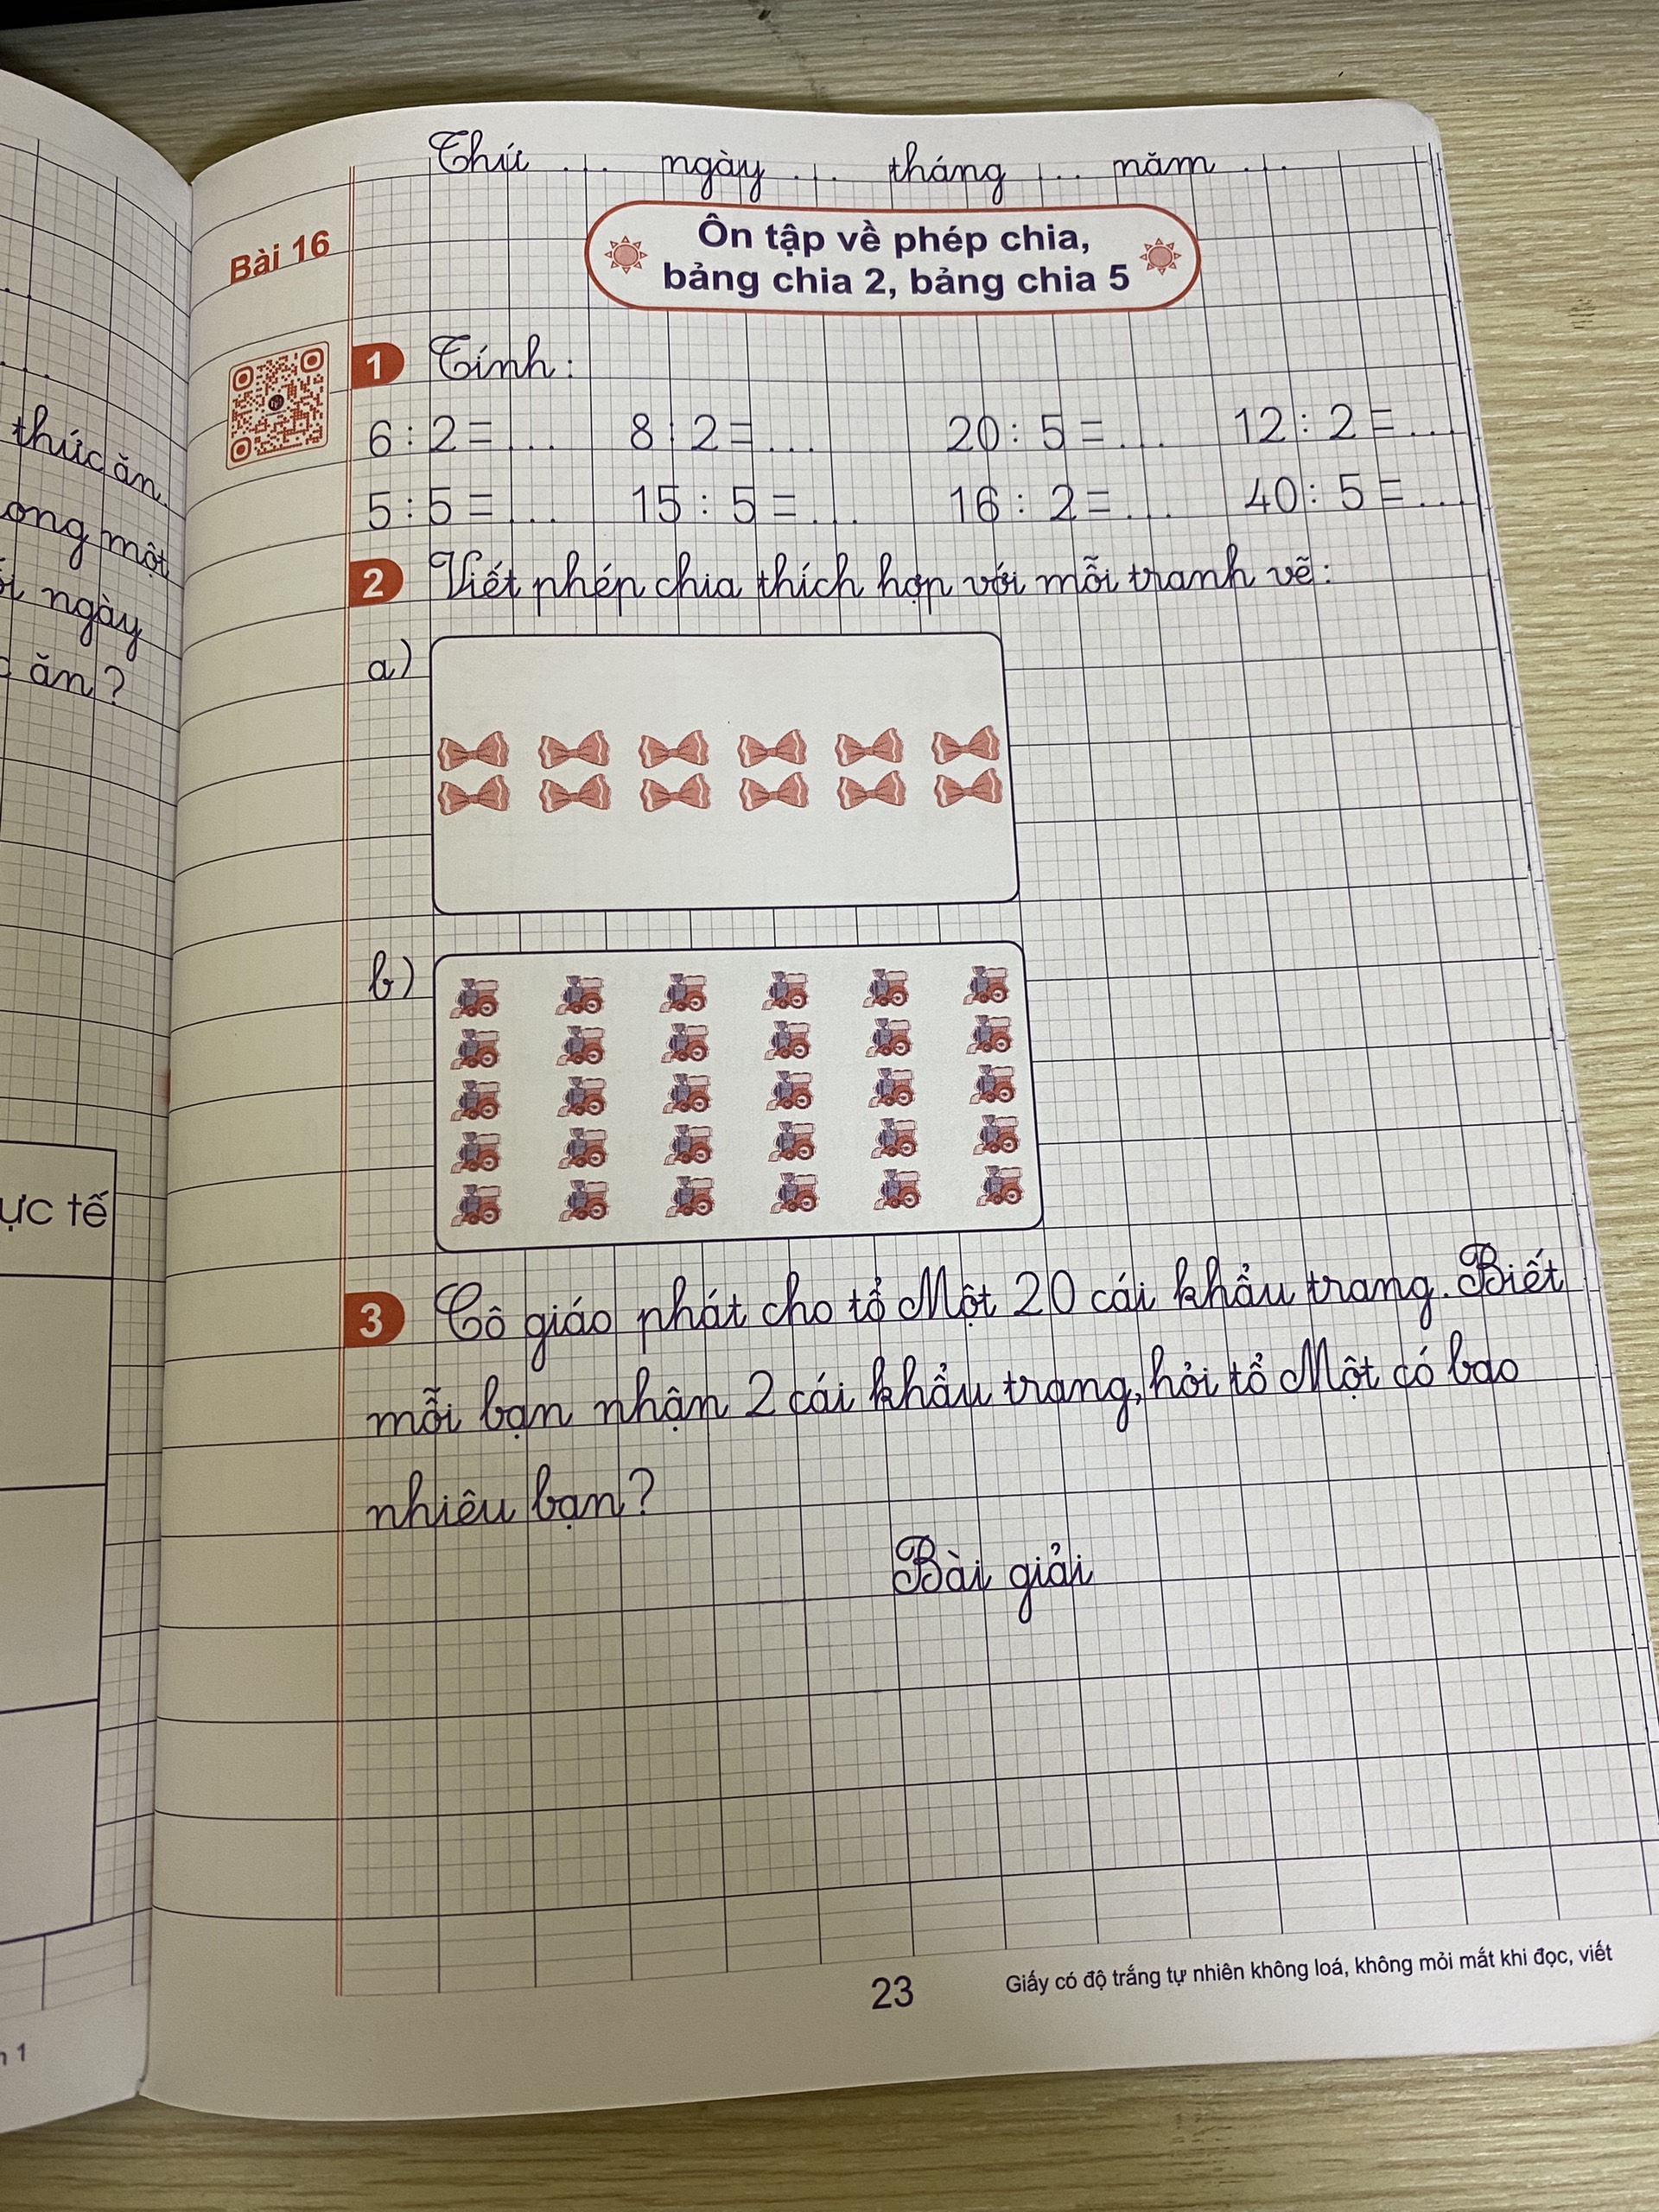 thức ăn.
ong một
ngày
ăn?
ực tế
Thứ ... ngày ... tháng ... năm ...
Bài 16
Ôn tập về phép chia,
bảng chia 2, bảng chia 5
1 Tính:
6 : 2 = ... 8 : 2 = ... 20 : 5 = ... 12 : 2 = ...
5 : 5 = ... 15 : 5 = ... 16 : 2 = ... 40 : 5 = ...
2 Viết phép chia thích hợp với mỗi tranh vẽ:
a)
b)
3 Cô giáo phát cho tổ Một 20 cái khẩu trang. Biết
mỗi bạn nhận 2 cái khẩu trang, hỏi tổ Một có bao
nhiêu bạn?
Bài giải
23 Giấy có độ trắng tự nhiên không loá, không mỏi mắt khi đọc, viết